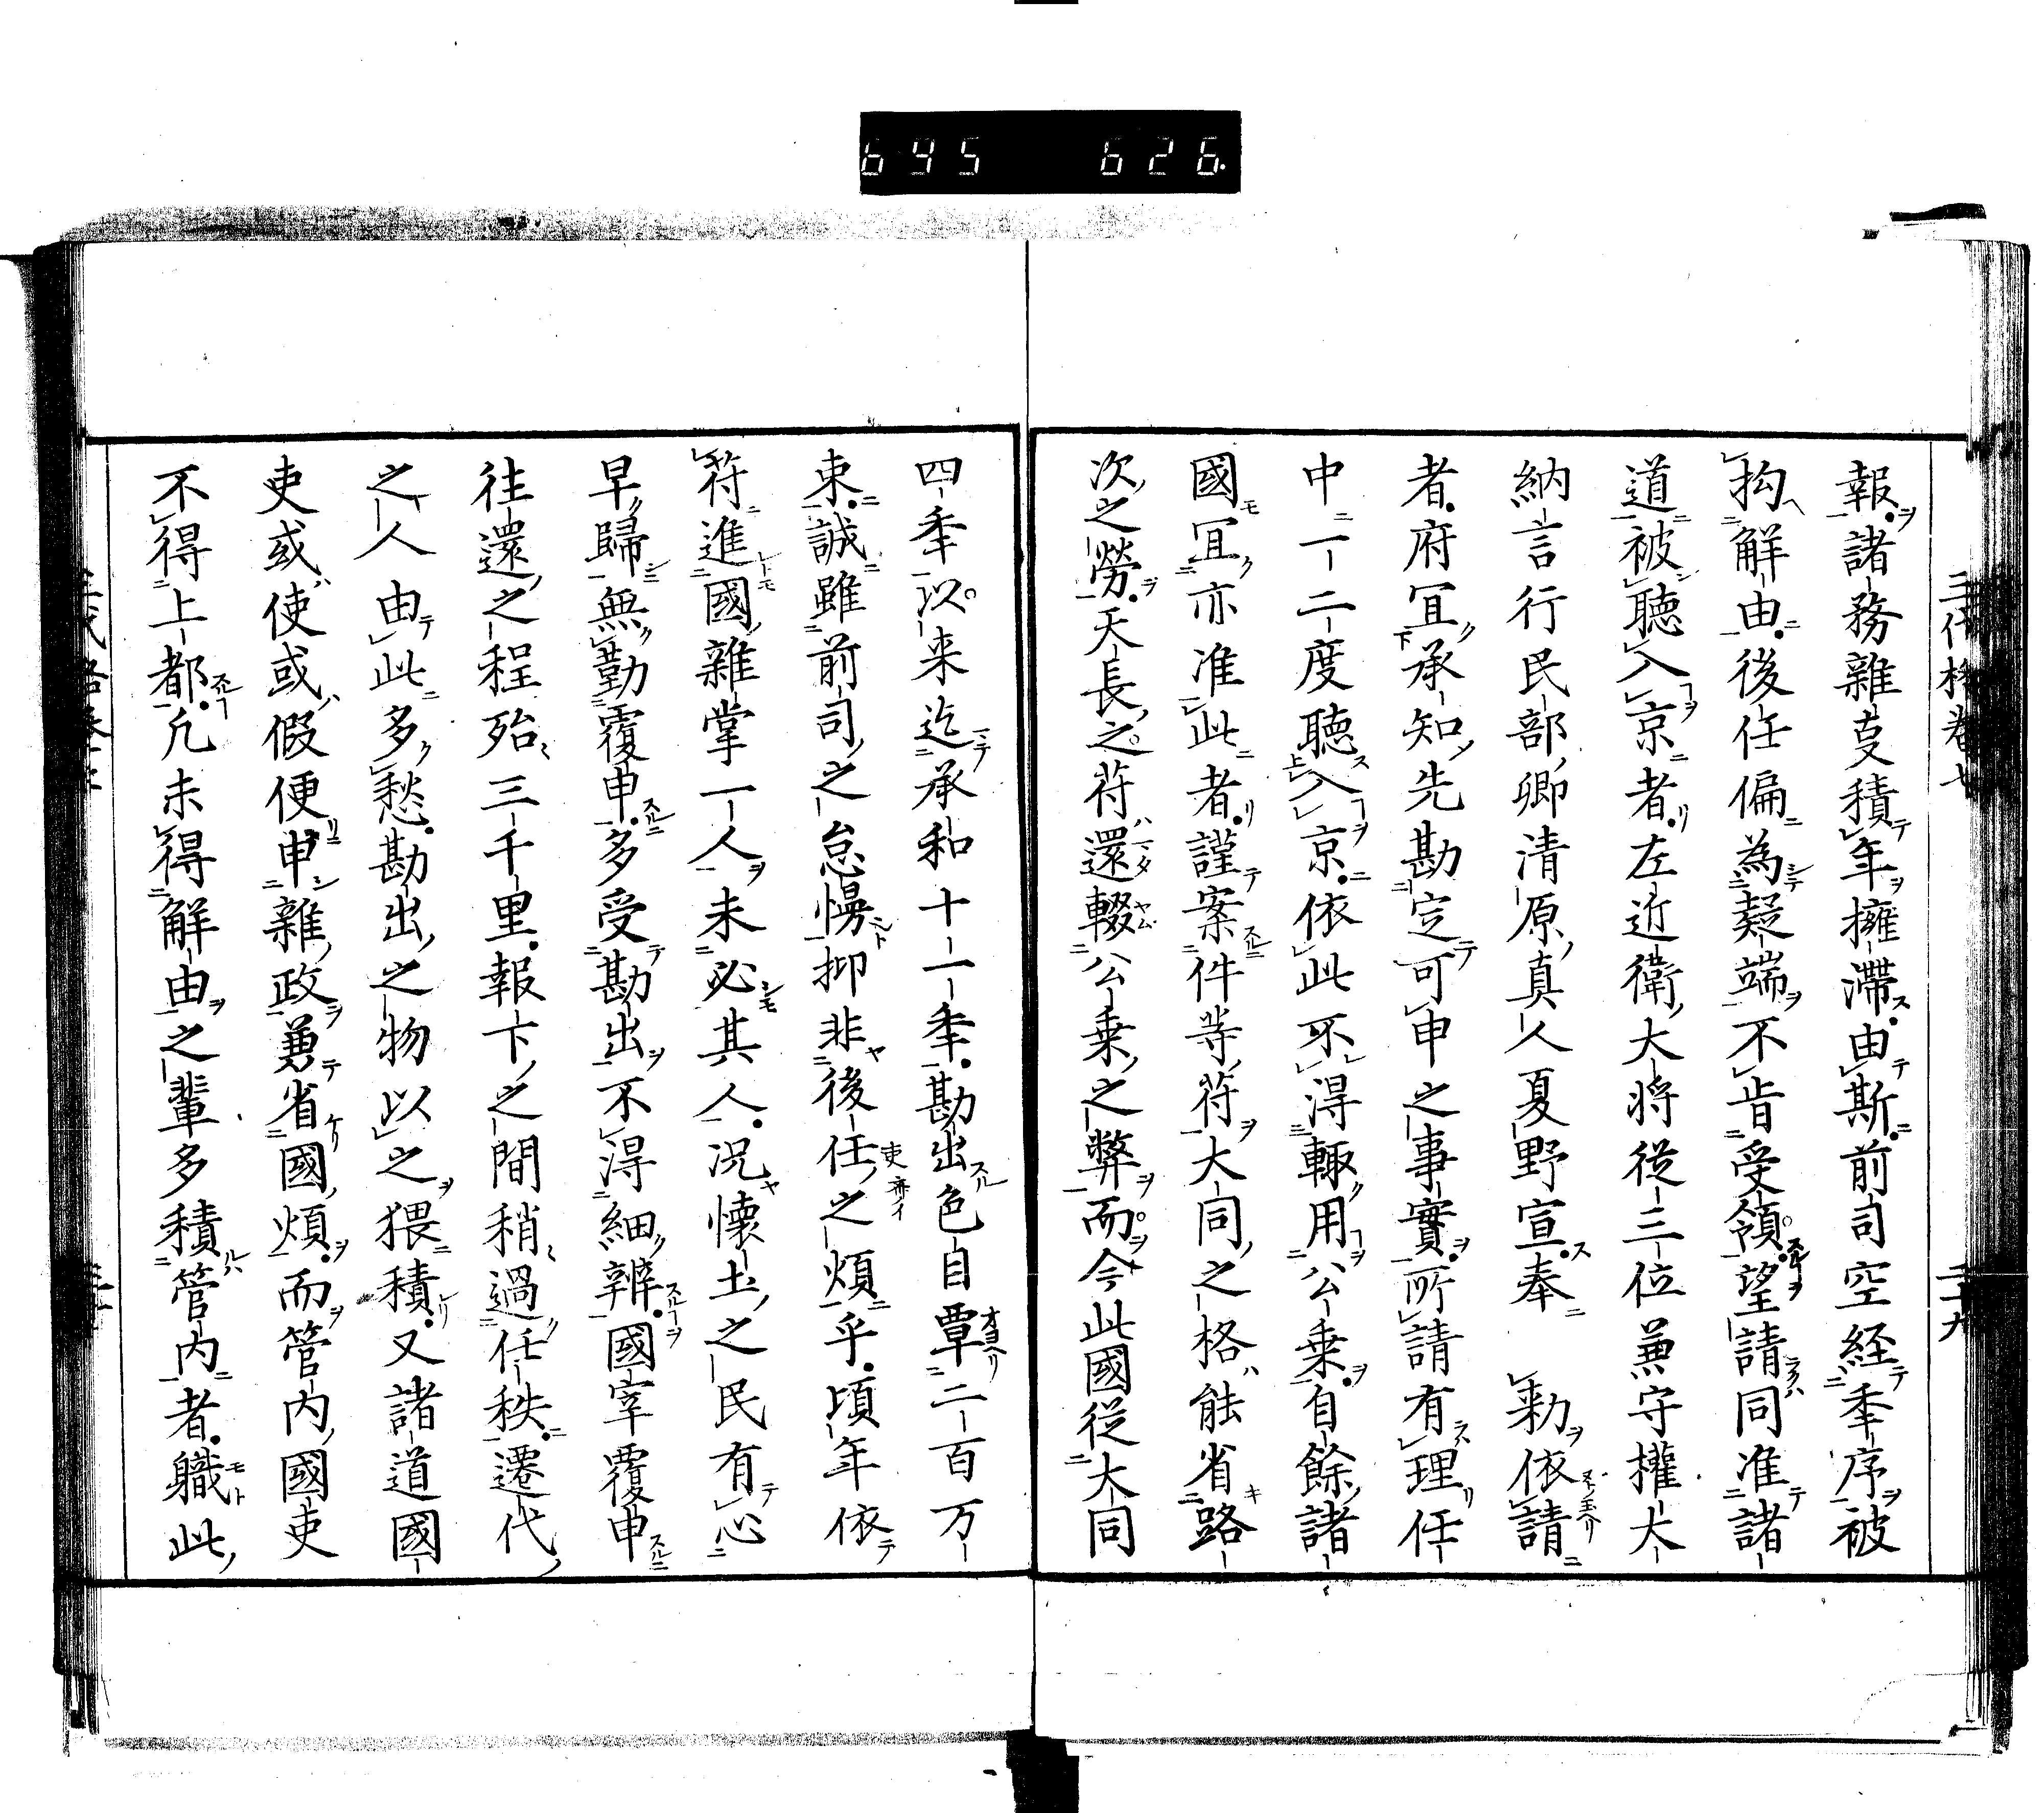 695 626.
報諸務雑事積年擁滞由斯前司空経季序被
拘解由後任偏為疑端不肯受領望請同准諸
道被聴入京者左近衛大将従三位兼守權大
納言行民部卿清原真人夏野宣奉　勅依請
者府冝承知先勘定可申之事實所請有理任
中一二度聴入京依此不得輙用公乗自餘諸
國冝亦准此者謹案件等符大同之格能省路
次之勞天長之符還輟公乗之弊而今此國従大同
四季以来迄承和十一季勘出色目覃二百万
束誠雖前司之怠慢抑非後任之煩乎頃年依
符進國雜掌一人未必其人况懐土之民有心
早歸無勤覆申多受勘出不得細辨國宰覆申
往還之程殆三千里報下之間稍過任秩遷代
之人由此多愁勘出之物以之猥積又諸道國
吏或使或假便申雜政兼省國煩而管内國吏
不得上都凢未得解由之輩多積管内者職此